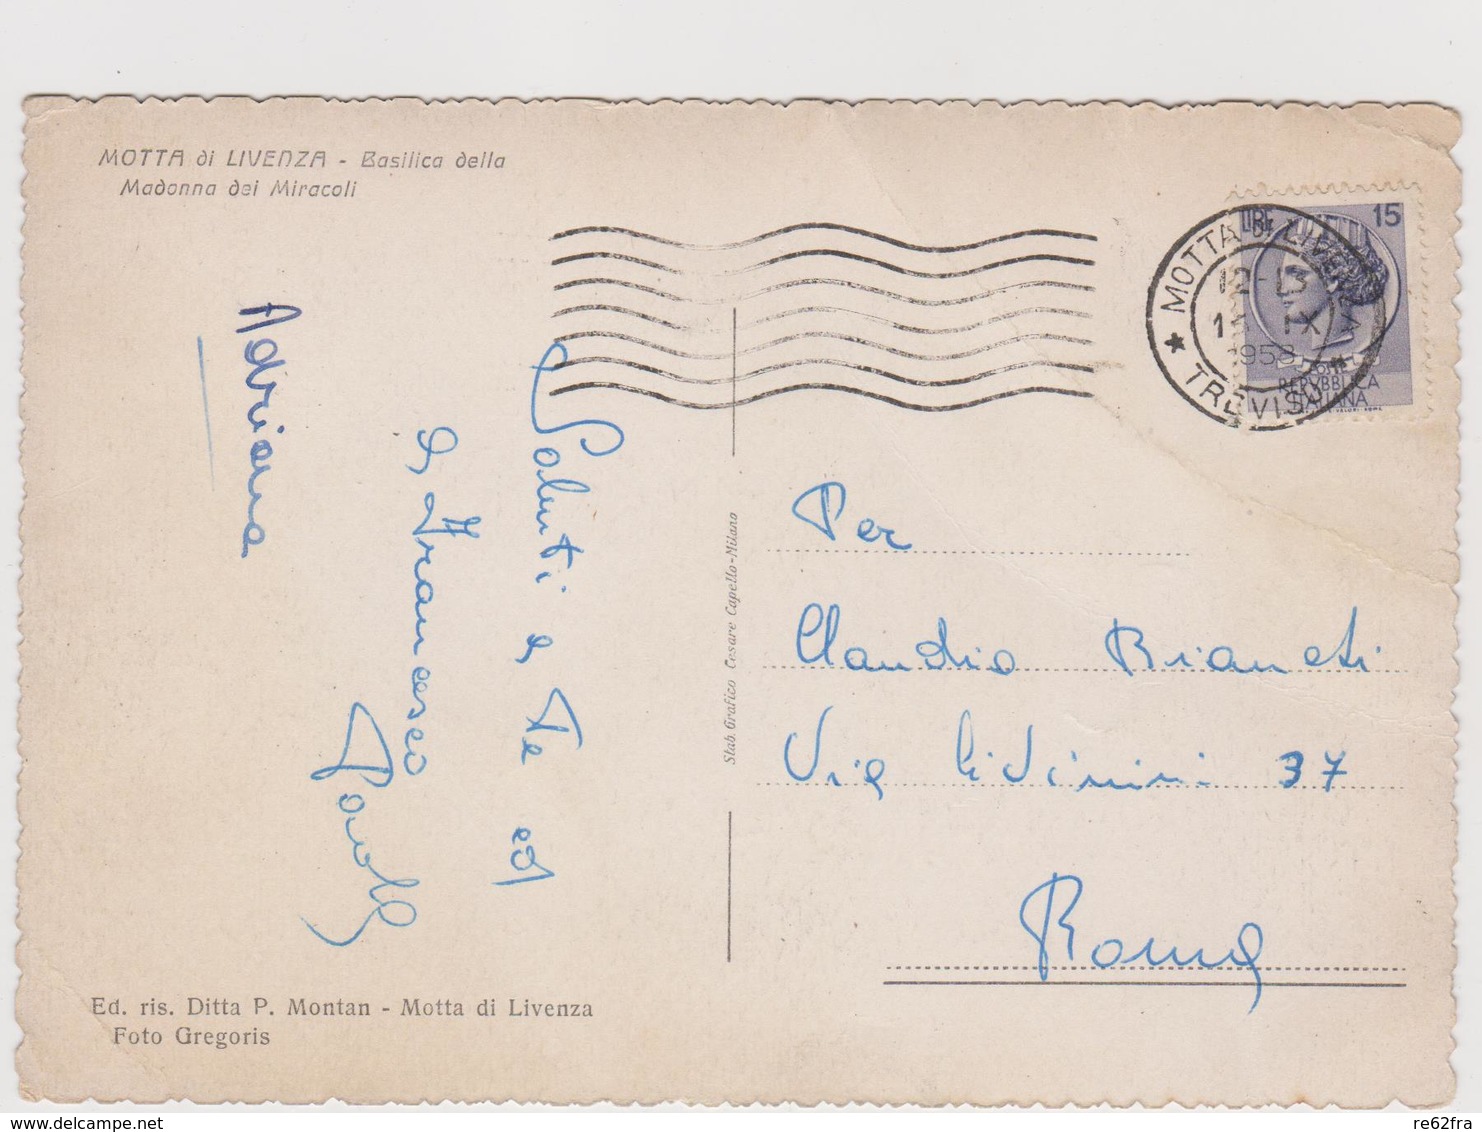 MOTTA di LIVENZA - Basilica della
Madonna dei Miracoli
Saluti a Te ed
a Francesco
Paolo
Adriana
Ed. ris. Ditta P. Montan - Motta di Livenza
Foto Gregoris
Stab. Grafico Cesare Capello-Milano
LIRE 15
REPVBBLICA
ITALIANA
MOTTA DI LIVENZA
12-13
IX
1958
* TREVISO *
Per
Claudio Bianchi
Via
37
Roma
re62fra